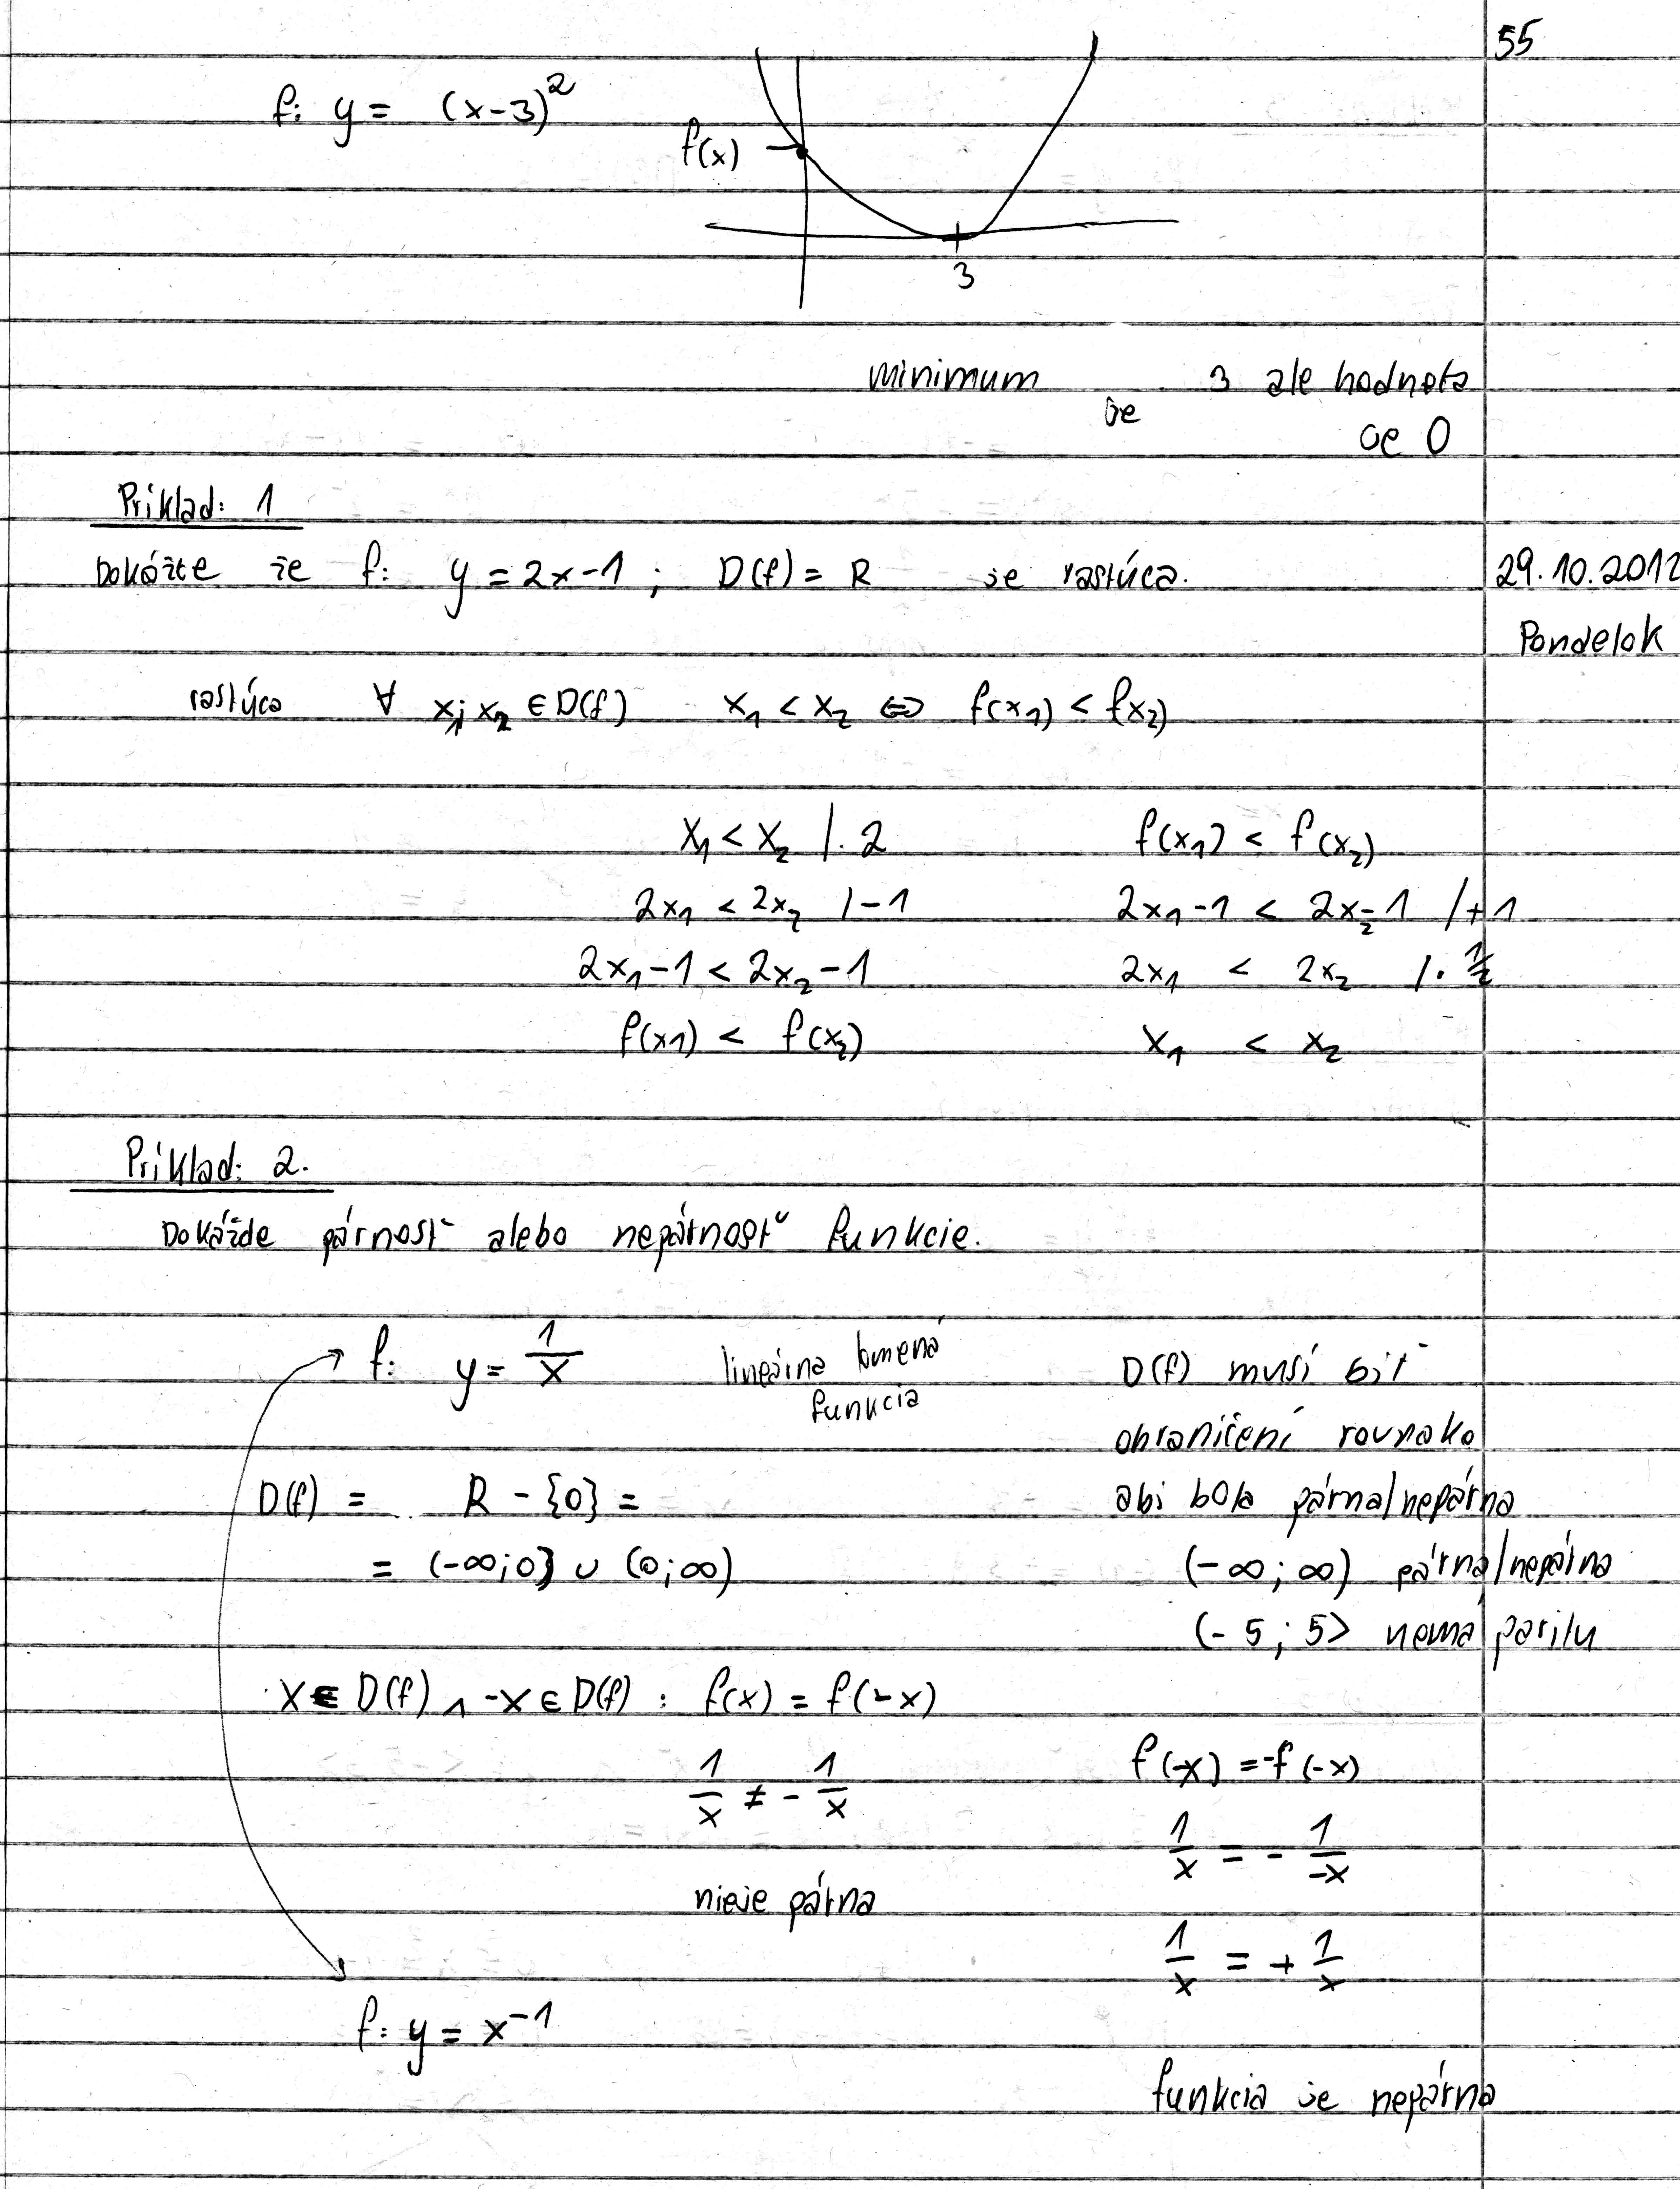 55
f: y = (x-3)²
f(x)
3
minimum je 3 ale hodnota
je 0
Príklad: 1
Dokážte že f: y = 2x-1 ; D(f) = R je rastúca.
29.10.2012
Pondelok
rastúca ∀ x₁; x₂ ∈ D(f) x₁ < x₂ ⇔ f(x₁) < f(x₂)
x₁ < x₂ /. 2 f(x₁) < f(x₂)
2x₁ < 2x₂ /-1 2x₁-1 < 2x₂-1 /+1
2x₁-1 < 2x₂-1 2x₁ < 2x₂ /. ½
f(x1) < f(x₂) x₁ < x₂
Príklad: 2.
Dokážde párnosť alebo nepárnosť funkcie.
f: y = 1/x lineárna lomená funkcia D(f) musí biť
ohraničení rovnako
D(f) = R - {0} = abi bola párna/nepárna
= (-∞;0) ∪ (0;∞) (-∞; ∞) párna/nepárna
(-5; 5> nemá paritu
x ∈ D(f) ∧ -x ∈ D(f) : f(x) = f(-x)
1/x ≠ - 1/x f(-x) = -f(-x)
1/x = - 1/-x
nieje párna
1/x = + 1/x
f: y = x⁻¹
funkcia je nepárna